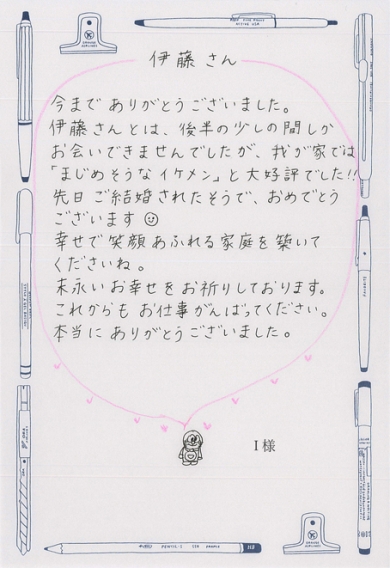 伊藤さん
今まで ありがとうございました。
伊藤さんとは、後半の少しの間しか
お会いできませんでしたが、我が家では
「まじめそうなイケメン」と大好評でした!!
先日 ご結婚されたそうで、おめでとう
ございます
幸せで笑顔あふれる家庭を築いて
くださいね。
末永いお幸せをお祈りしております。
これからも お仕事がんばってください。
本当に ありがとうございました。
I 様